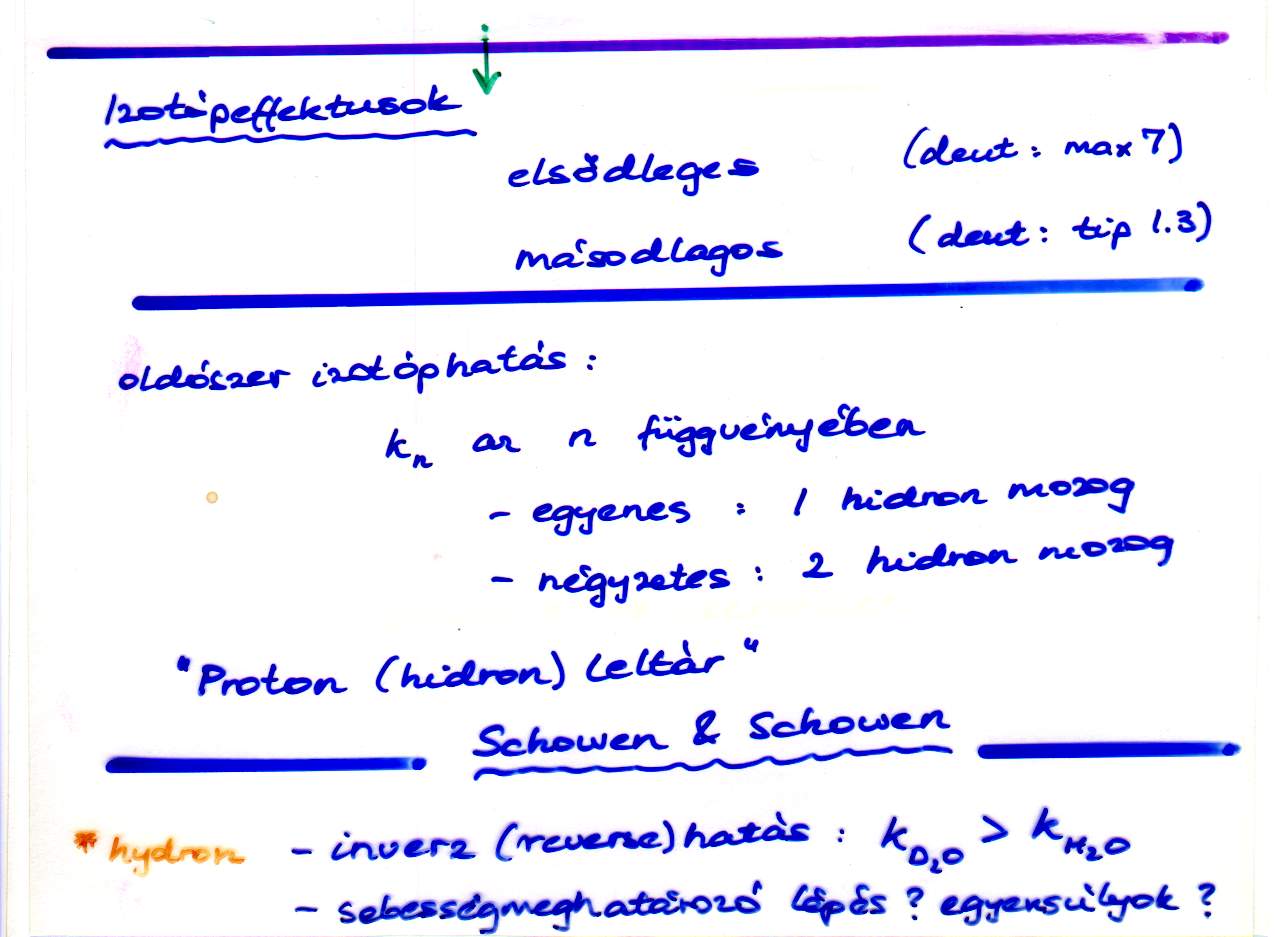 Izotópeffektusok
elsődleges (deut: max 7)
másodlagos (deut: tip 1.3)
oldószer izotóphatás:
kₙ az n függvényében
- egyenes : 1 hidron mozog
- négyzetes : 2 hidron mozog
"Proton (hidron) leltár"
Schowen & Schowen
* hydron - inverz (reverse) hatás : k_D₂O > k_H₂O
- sebességmeghatározó lépés ? egyensúlyok ?